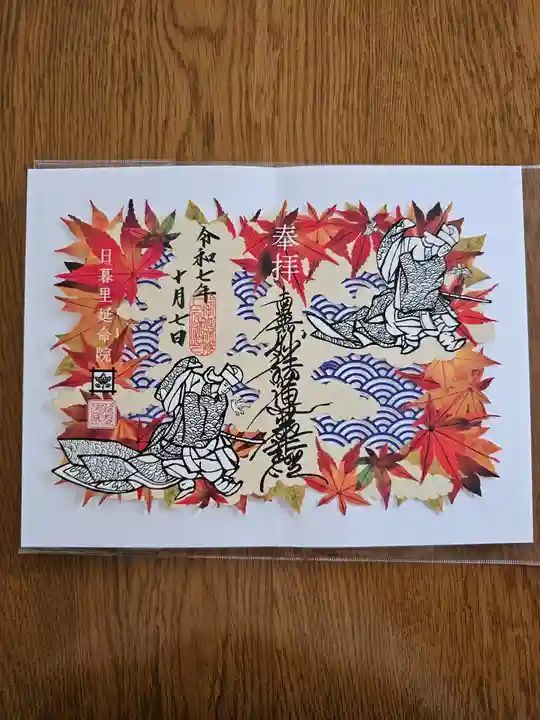 奉拝
南無妙法蓮華経
令和七年
十月七日
日暮里延命院